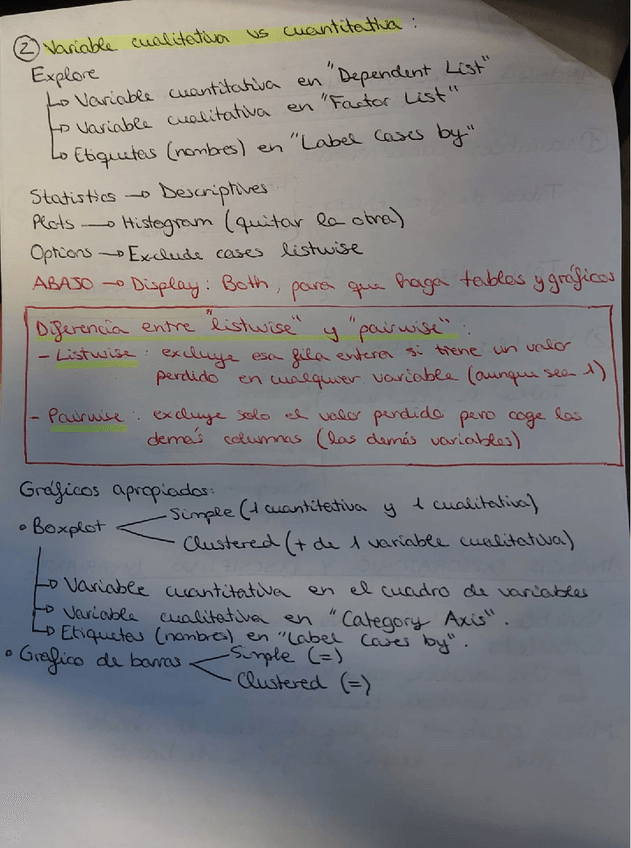 ② Variable cualitativa vs cuantitativa :
Explore
↳ Variable cuantitativa en "Dependent List"
↳ Variable cualitativa en "Factor List"
↳ Etiquetas (nombres) en "Label cases by"
Statistics → Descriptives
Plots → Histogram (quitar la otra)
Options → Exclude cases listwise
ABAJO → Display: Both, para que haga tablas y gráficos
Diferencia entre "listwise" y "pairwise" :
- Listwise : excluye esa fila entera si tiene un valor
perdido en cualquier variable (aunque sea 1)
- Pairwise : excluye solo el valor perdido pero coge las
demás columnas (las demás variables)
Gráficos apropiados:
• Boxplot
Simple (1 cuantitativa y 1 cualitativa)
Clustered (+ de 1 variable cualitativa)
↳ Variable cuantitativa en el cuadro de variables
↳ Variable cualitativa en "Category Axis".
↳ Etiquetas (nombres) en "Label Cases by".
• Gráfico de barras
Simple (=)
Clustered (=)